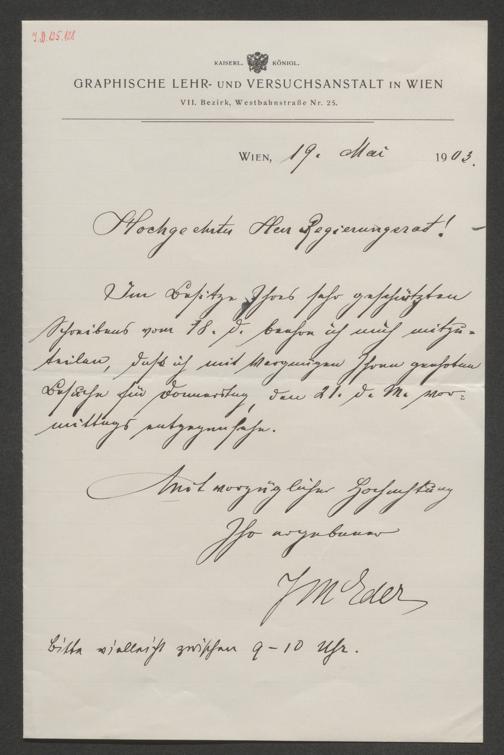 J.N. 125.128
KAISERL. KÖNIGL.
GRAPHISCHE LEHR- UND VERSUCHSANSTALT IN WIEN
VII. Bezirk, Westbahnstraße Nr. 25.
WIEN, 19. Mai 1903.
Hochgeehrter Herr Regierungsrat!
Im Besitze Ihres sehr geschätzten
Schreibens vom 18. d. beehre ich mich mitzu-
teilen, daß ich mit Vergnügen Ihrem geehrten
Besuche für Donnerstag, den 21. d. M. vor-
mittags entgegensehe.
Mit vorzüglicher Hochachtung
Ihr ergebener
JMEder
Bitte vielleicht zwischen 9-10 Uhr.